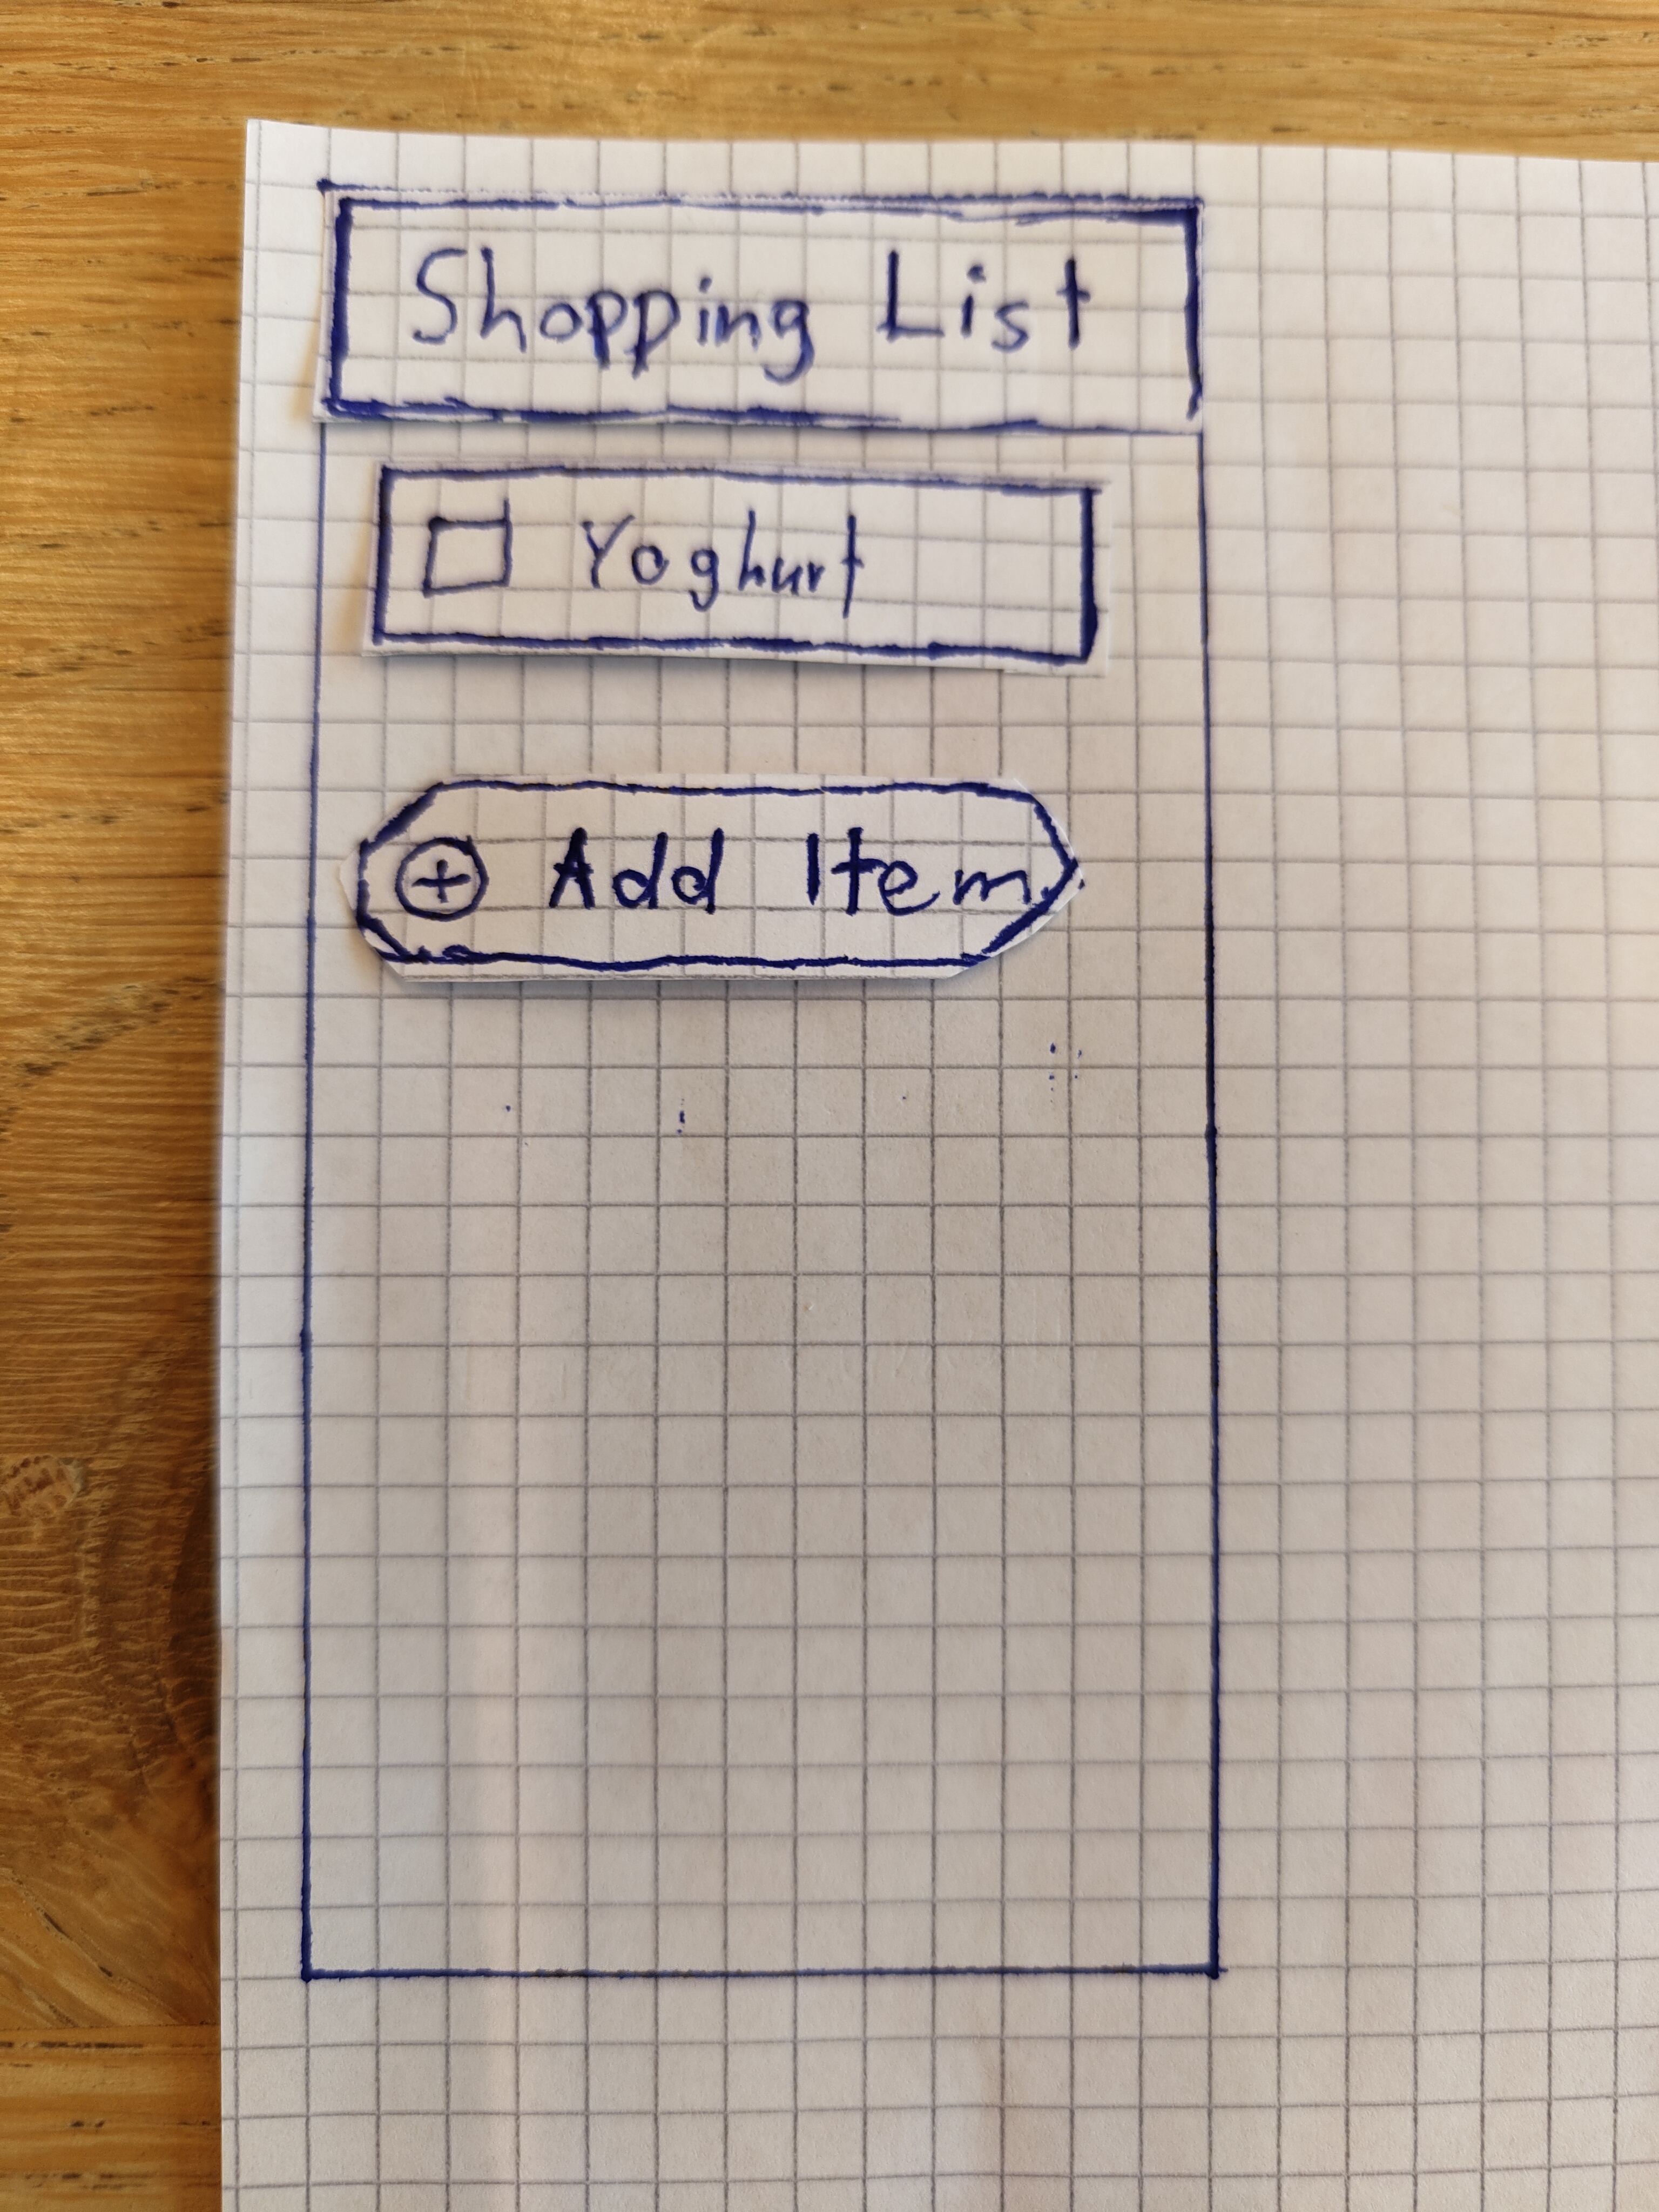 Shopping List
Yoghurt
+ Add Item